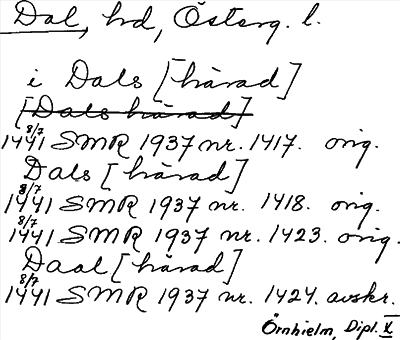 Dal, hrd, Österg. l.
i Dals [härad]
[Dals härad]
8/7 1441 SMR 1937 nr. 1417. orig.
Dals [härad]
8/7 1441 SMR 1937 nr. 1418. orig.
8/7 1441 SMR 1937 nr. 1423. orig.
Daal [härad]
8/7 1441 SMR 1937 nr. 1424. avskr.
Örnhielm, Dipl. X